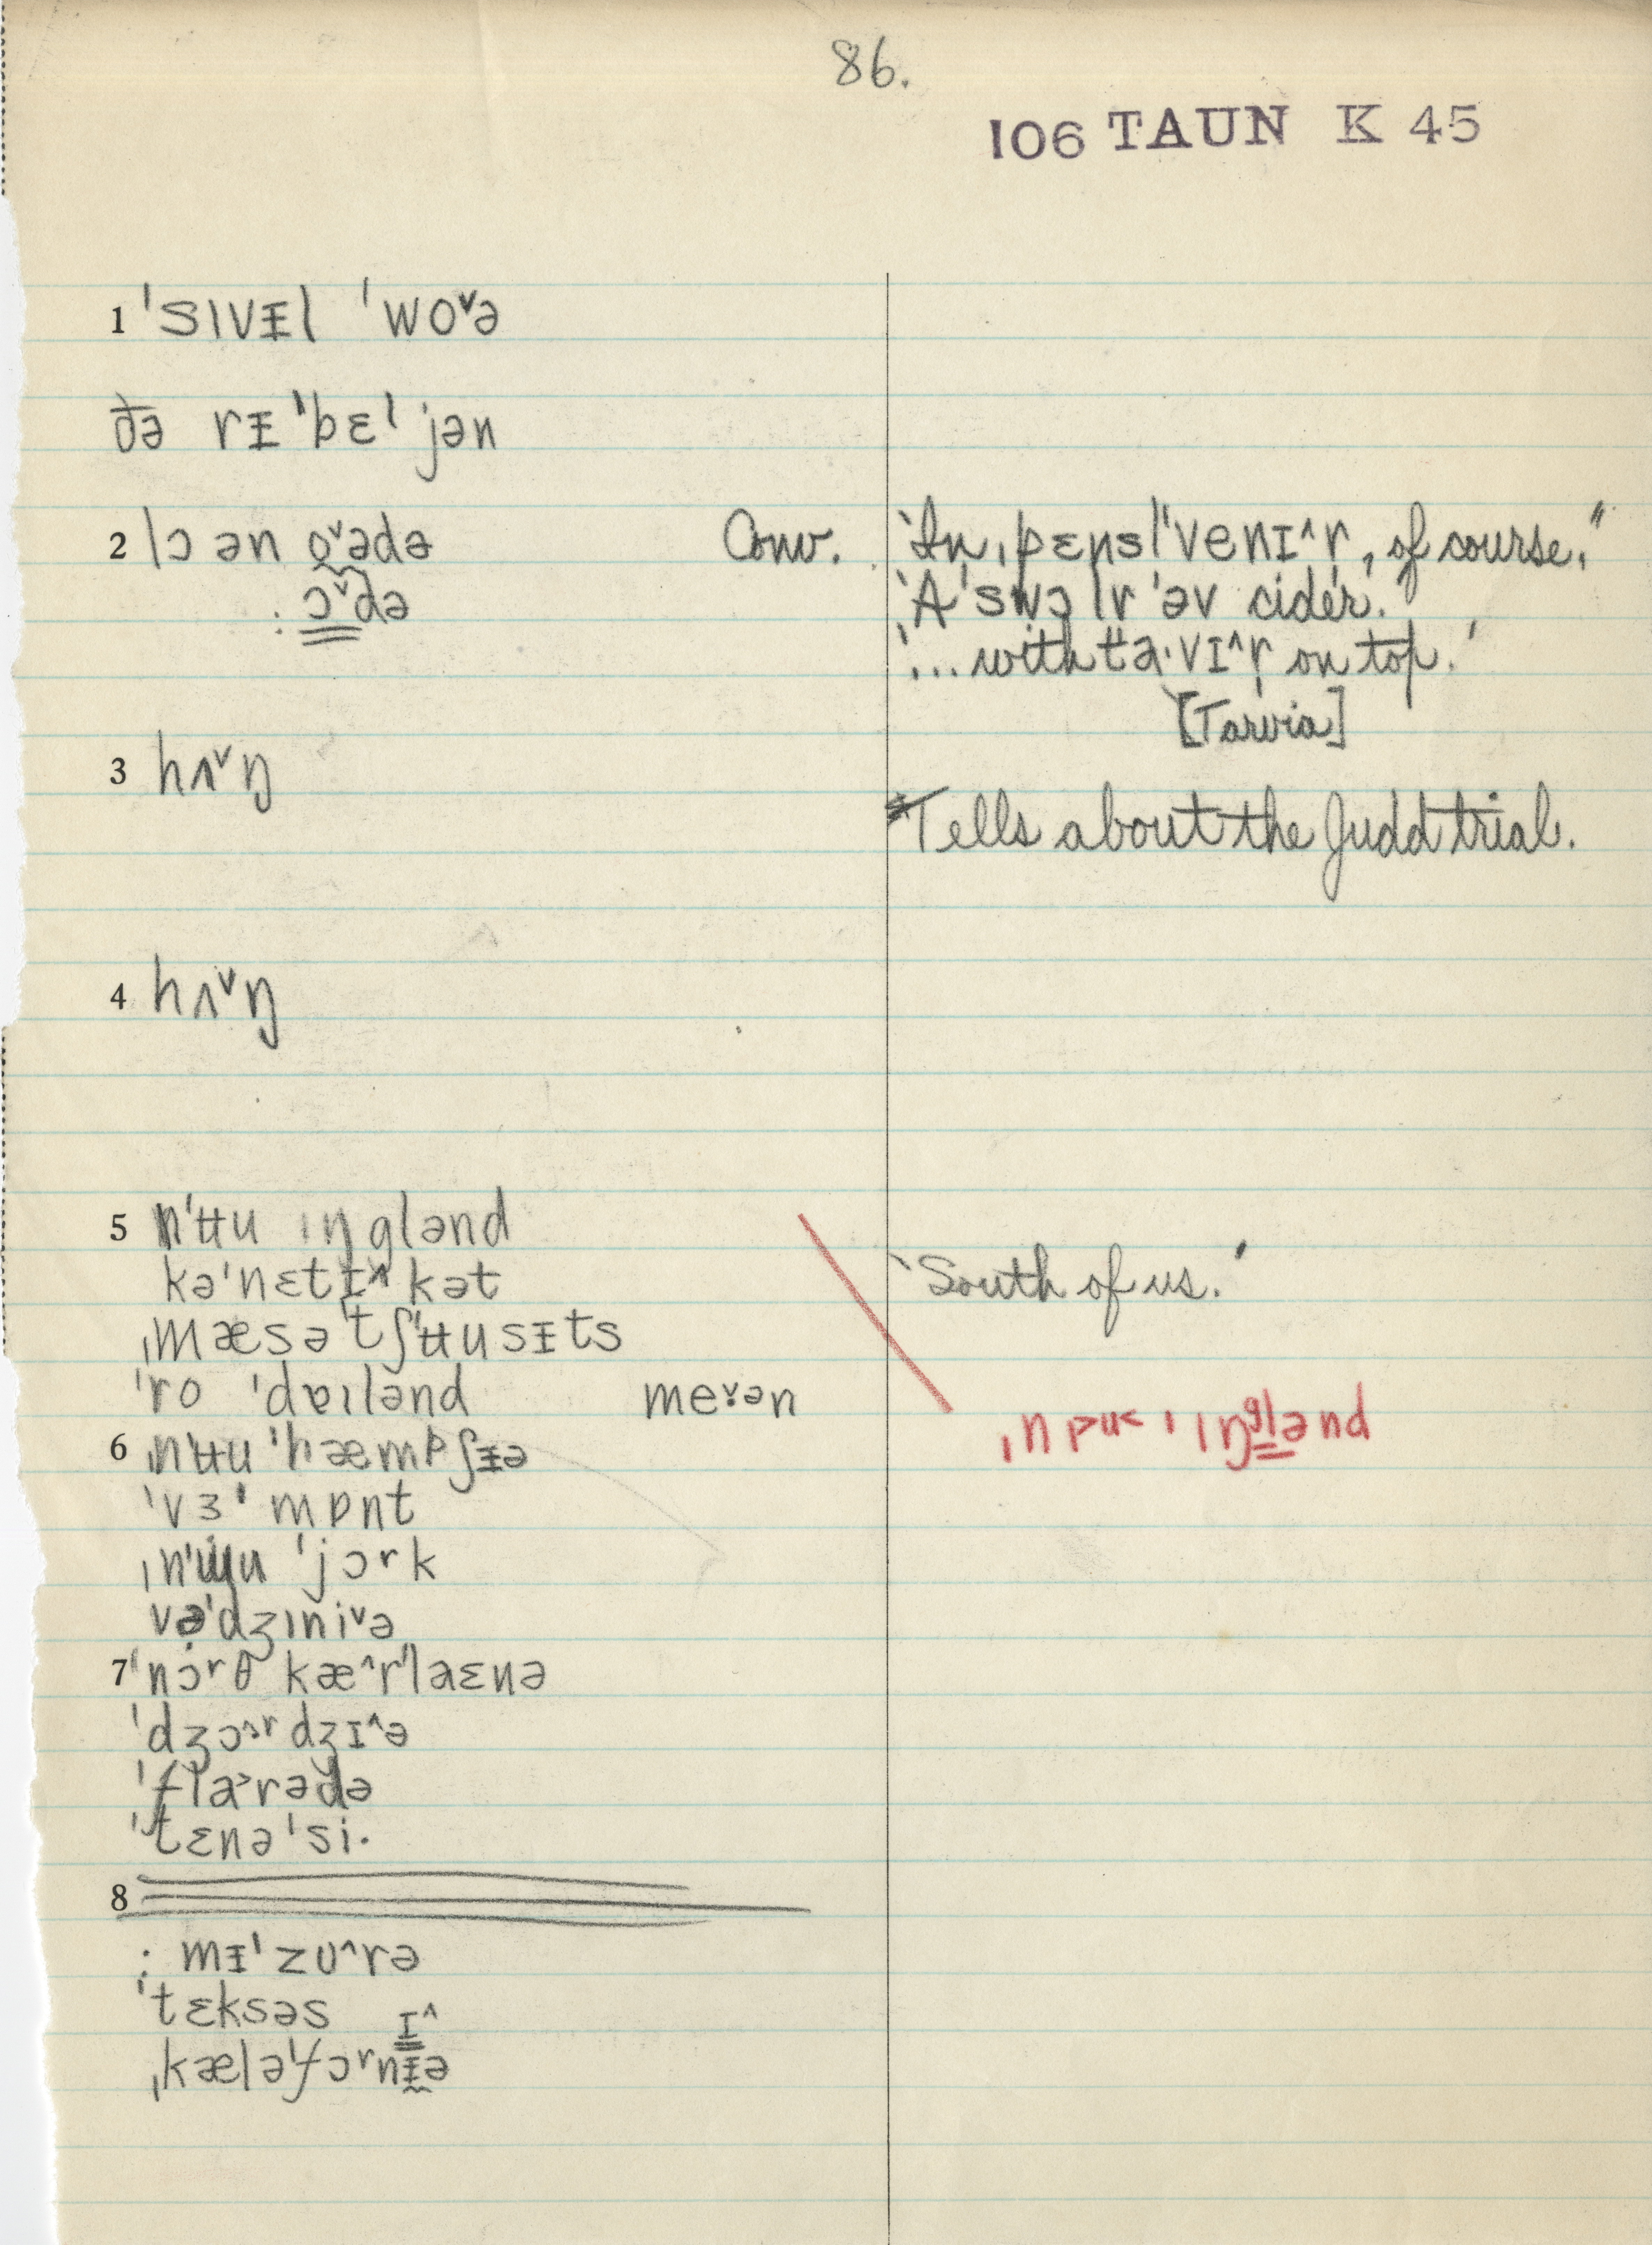 86.
106 TAUN K 45
1 ˈsɪvᵻl ˈwoˇə
ðə rᵻˈbɛˡjən
2 lɔ ən o̰ˇədə
: ɔˇdə
Conv. ‘In ˌpɛnsl̩ˈvenɪ^r, of course.’
‘A ˈswɔlr ˈəv cider.’
‘... with ta·vɪ^r on top.’
[Tarvia]
3 hʌˇŋ
Tells about the Judd trial.
4 hʌˇŋ
5 nˈʉu ɪŋglənd
kəˈnɛtɪ^kət
‘South of us.’
ˌmæsəˈtʃʉusᵻts
ˈro ˈdɐɪlənd meˇ·ən
6 ˌnʉu ˈhæmpʃᵻə
ˈvɜˈmɒnt
ˌnʉu ˈjɔrk
vəˈdʒɪniˇə
7 ˈnɔrθ kæ^rˈlaɛnə
ˈdʒɔ^rdʒɪ^ə
ˈflɑ˃rədə
ˈtɛnəˈsi·
8
: mᵻˈzʊ^rə
ˈtɛksəs
ɪ^
ˌkæləˈfɔrnᵻə